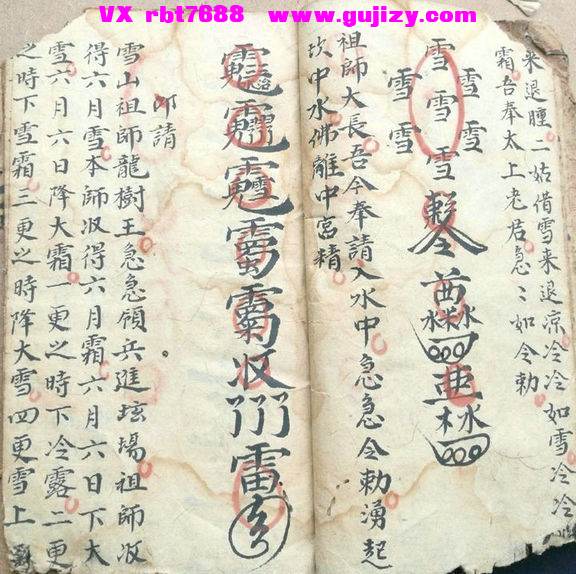 VX rbt7688 www.gujizy.com
来退腫二姑借雪来退凉冷冷如雪冷冷
霜吾奉太上老君急〻如令勅
雪
雪雪雪
雪雪
雪
祖師大長吾今奉請入水中急急令勅湧起
坎中水佛離中宮精
雷
叩請
雪山祖師龍樹王急急領兵進壇場祖師收
得六月雪本師收得六月霜六月六日下大
雪六月六日降大霜一更之時下冷露二更
之時下雪霜三更之時降大雪四更雪上